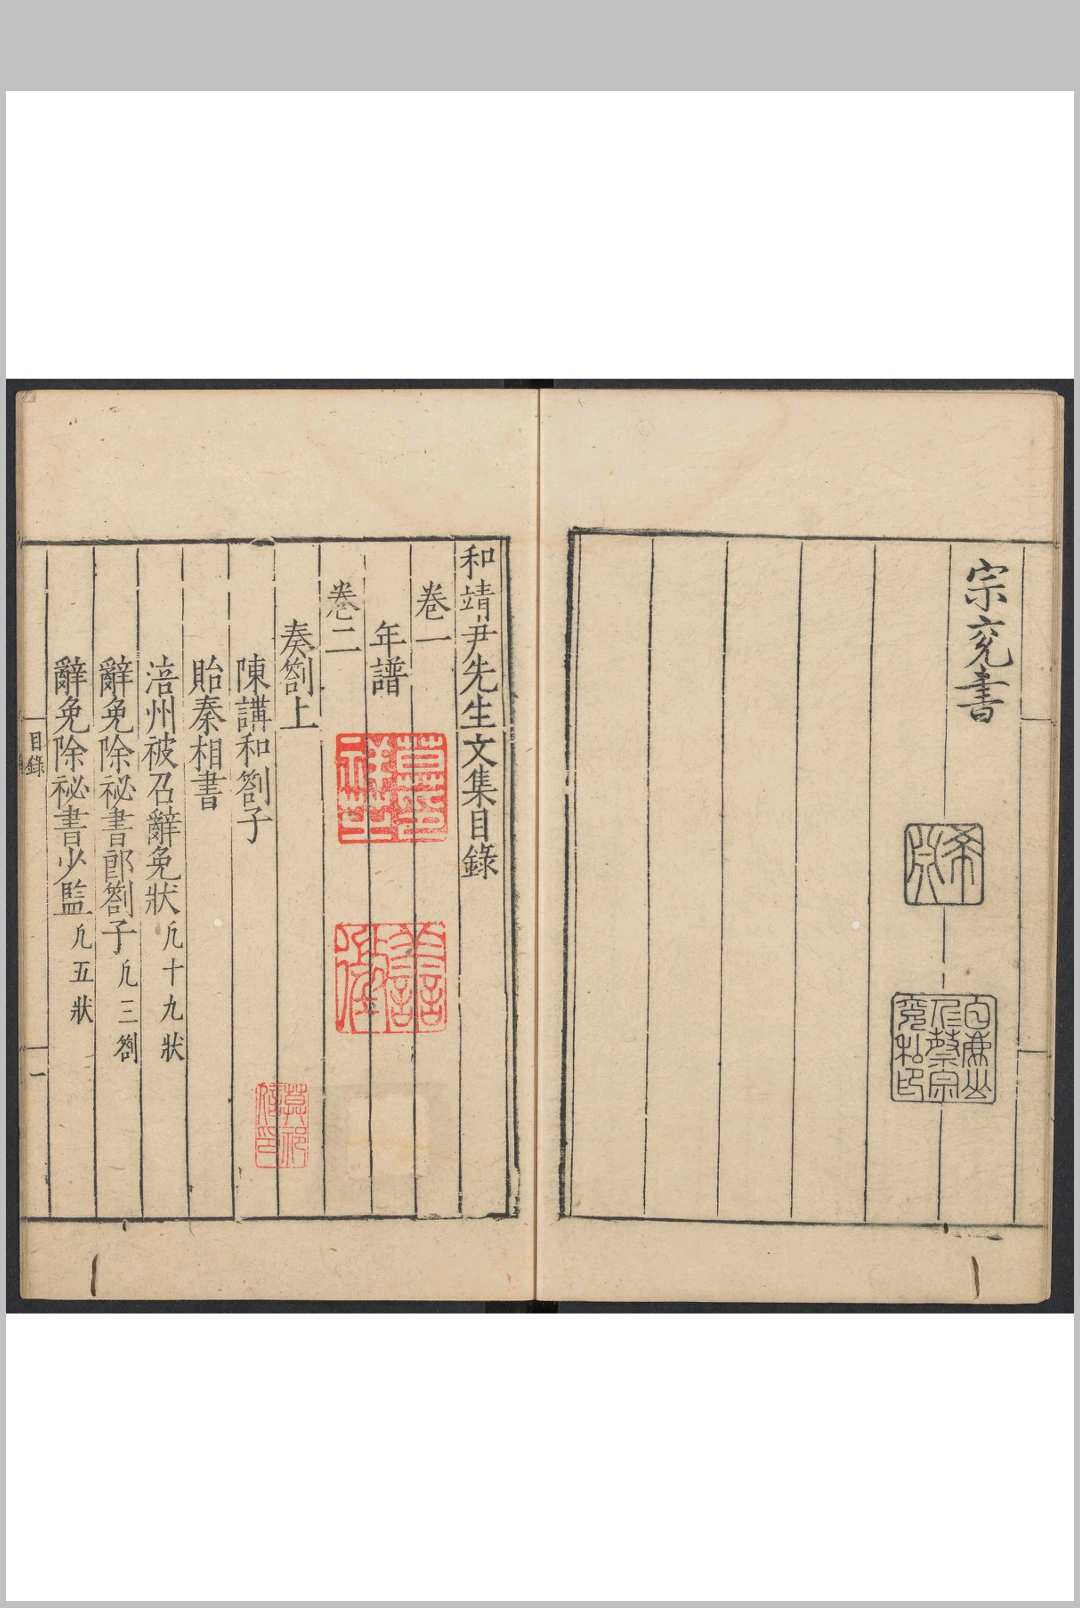 宗兗書
和靖尹先生文集目錄
卷一
年譜
卷二
奏劄上
陳講和劄子
貽秦相書
涪州被召辭免狀凢十九狀
辭免除祕書郎劄子凢三劄
辭免除祕書少監凢五狀
目錄
一